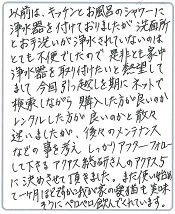 以前は、キッチンとお風呂のシャワーに
浄水器を付けておりましたが洗面所
とお手洗いが浄水されていないのは
とても不便でしたので是非とも家中
浄水器を取り付けたいと熱望して
まして今回引っ越しを期にネットで
検索しながら購入した方が良いのか
レンタルした方が良いのかと散々
迷いましたが、後々のメンテナンス
などの事を考えしっかりアフターフォロー
して下さるアクアス総研さんのアクアス5
に決めさせて頂きました。まだ使い始め
て一ヶ月ほどですが我が家の愛猫も美味
そうにペロペロ飲んでくれています。